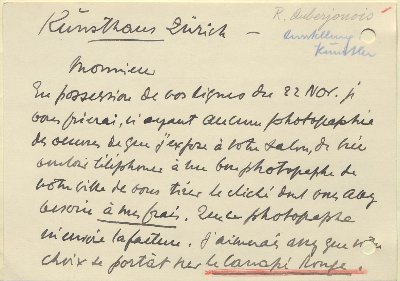 Kunsthaus Zürich —
R. Auberjonois
Ausstellung
Künstler
Monsieur
En possession de vos lignes du 22 Nov. je
vous prierai, n'ayant aucune photographie
des œuvres que j'expose à votre salon, de bien
vouloir téléphoner à un bon photographe de
votre ville de vous tirer le cliché dont vous avez
besoin à mes frais. Que ce photographe
m'envoie la facture. J'aimerais assez que votre
choix se portât sur le Canapé Rouge.